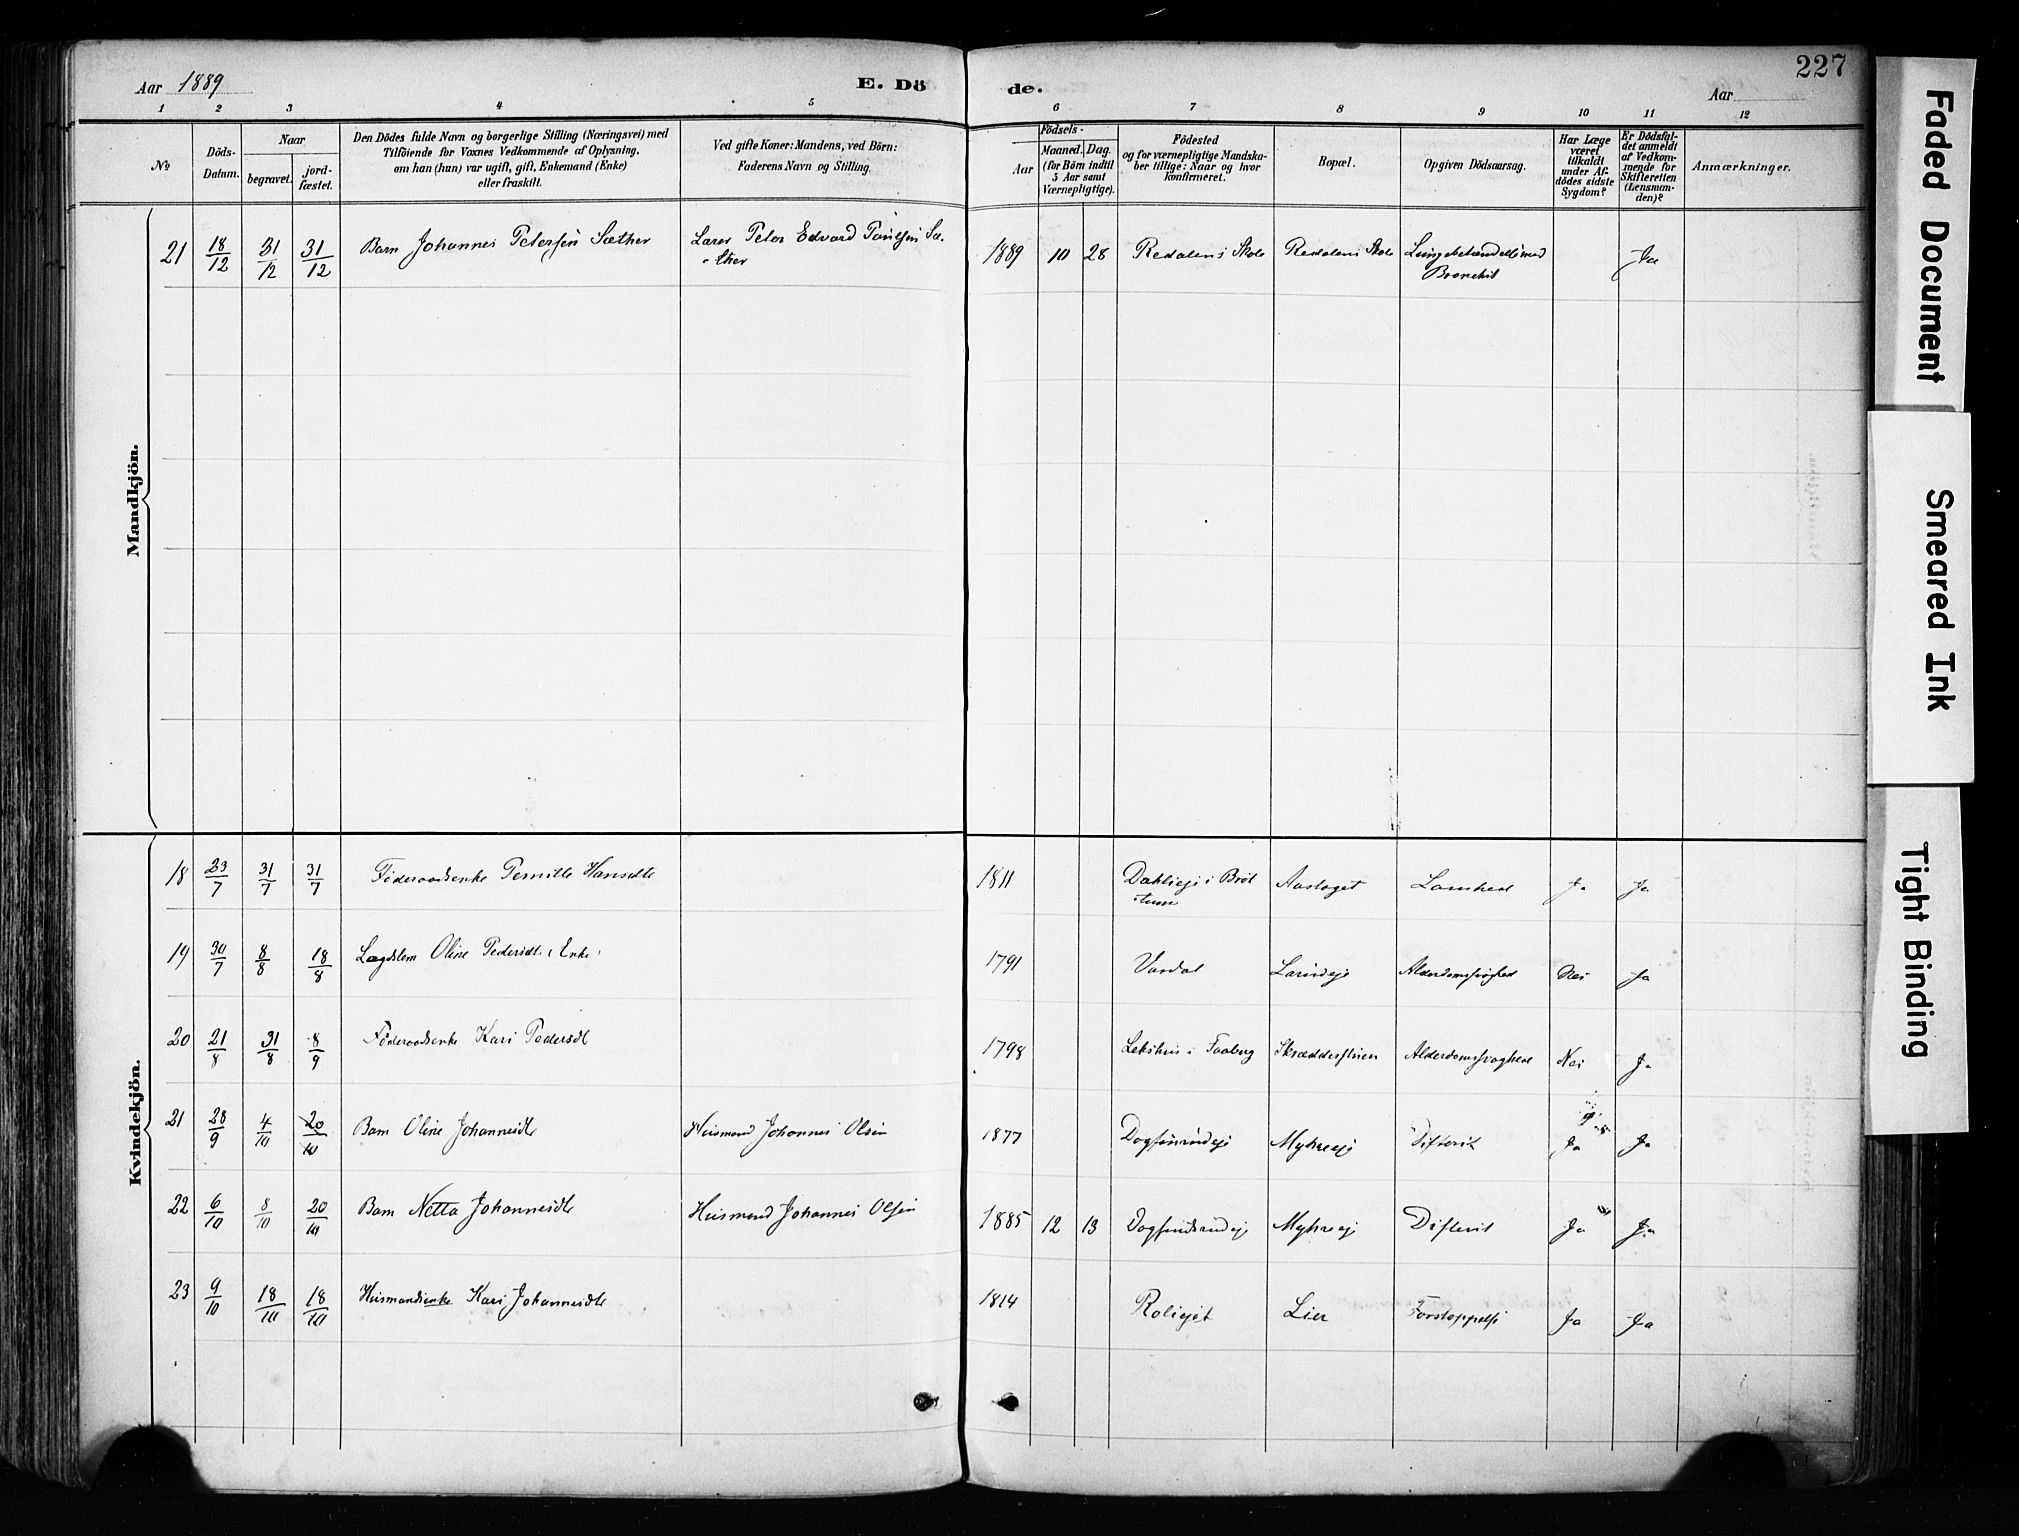 Aar 1889
E. Dö
de.
227
Aar
1 2 3 4 5 6 7 8 9 10 11 12
No
Döds-
Datum.
Naar
begravet.
jord-
fæstet.
Den Dödes fulde Navn og borgerlige Stilling (Næringsvei) med
Tilföiende for Voxnes Vedkommende af Oplysning,
om han (hun) var ugift, gift, Enkemand (Enke)
eller fraskilt.
Ved gifte Koner: Mandens, ved Börn:
Faderens Navn og Stilling.
Födsels-
Aar
Maaned. Dag.
(for Börn indtil
5 Aar samt
Værnepligtige).
Födested
og for værnepligtige Mandska-
ber tillige: Naar og hvor
konfirmeret.
Bopæl.
Opgiven Dödsaarsag.
Har Læge
været
tilkaldt
under Af-
dödes sidste
Sygdom?
Er Dödsfal-
det anmeldt
af Vedkom-
mende for
Skifteretten
(Lensman-
den)?
Anmærkninger.
Mandkjön.
21 18/12 31/12 31/12 Barn Johannes Petersen Sæther Lærer Peter Edvard Paulsen Sæ- 1889 10 28 Redalens Skole Redalens Skole Lungebetændelse med Ja
ther Bronchit
Kvindekjön.
18 23/7 31/7 31/7 Föderaadsenke Pernille Hansdtr 1811 Dahlieje i Bröt Aaslaget Lamhed Ja Ja
tum
19 30/7 8/8 18/8 Lægdslem Oline Pedersdtr (Enke) 1791 Vardal Alderdomssvaghed Nei Ja
20 21/8 31/8 8/9 Föderaadsenke Kari Pedersdtr 1798 Lekshus i Faaberg Skrædderstuen Alderdomssvaghed Nei Ja
21 28/9 4/10 20/10 Barn Oline Johannesdtr Husmand Johannes Olsen 1877 Myhreeje Difterit Ja Ja
22 6/10 8/10 20/10 Barn Netta Johannesdtr Husmand Johannes Olsen 1885 12 13 Myhreeje Difterit Ja Ja
23 9/10 18/10 18/10 Husmandsenke Kari Johannesdtr 1814 Lier Forstoppelse Ja Ja
Faded Document
Smeared Ink
Tight Binding